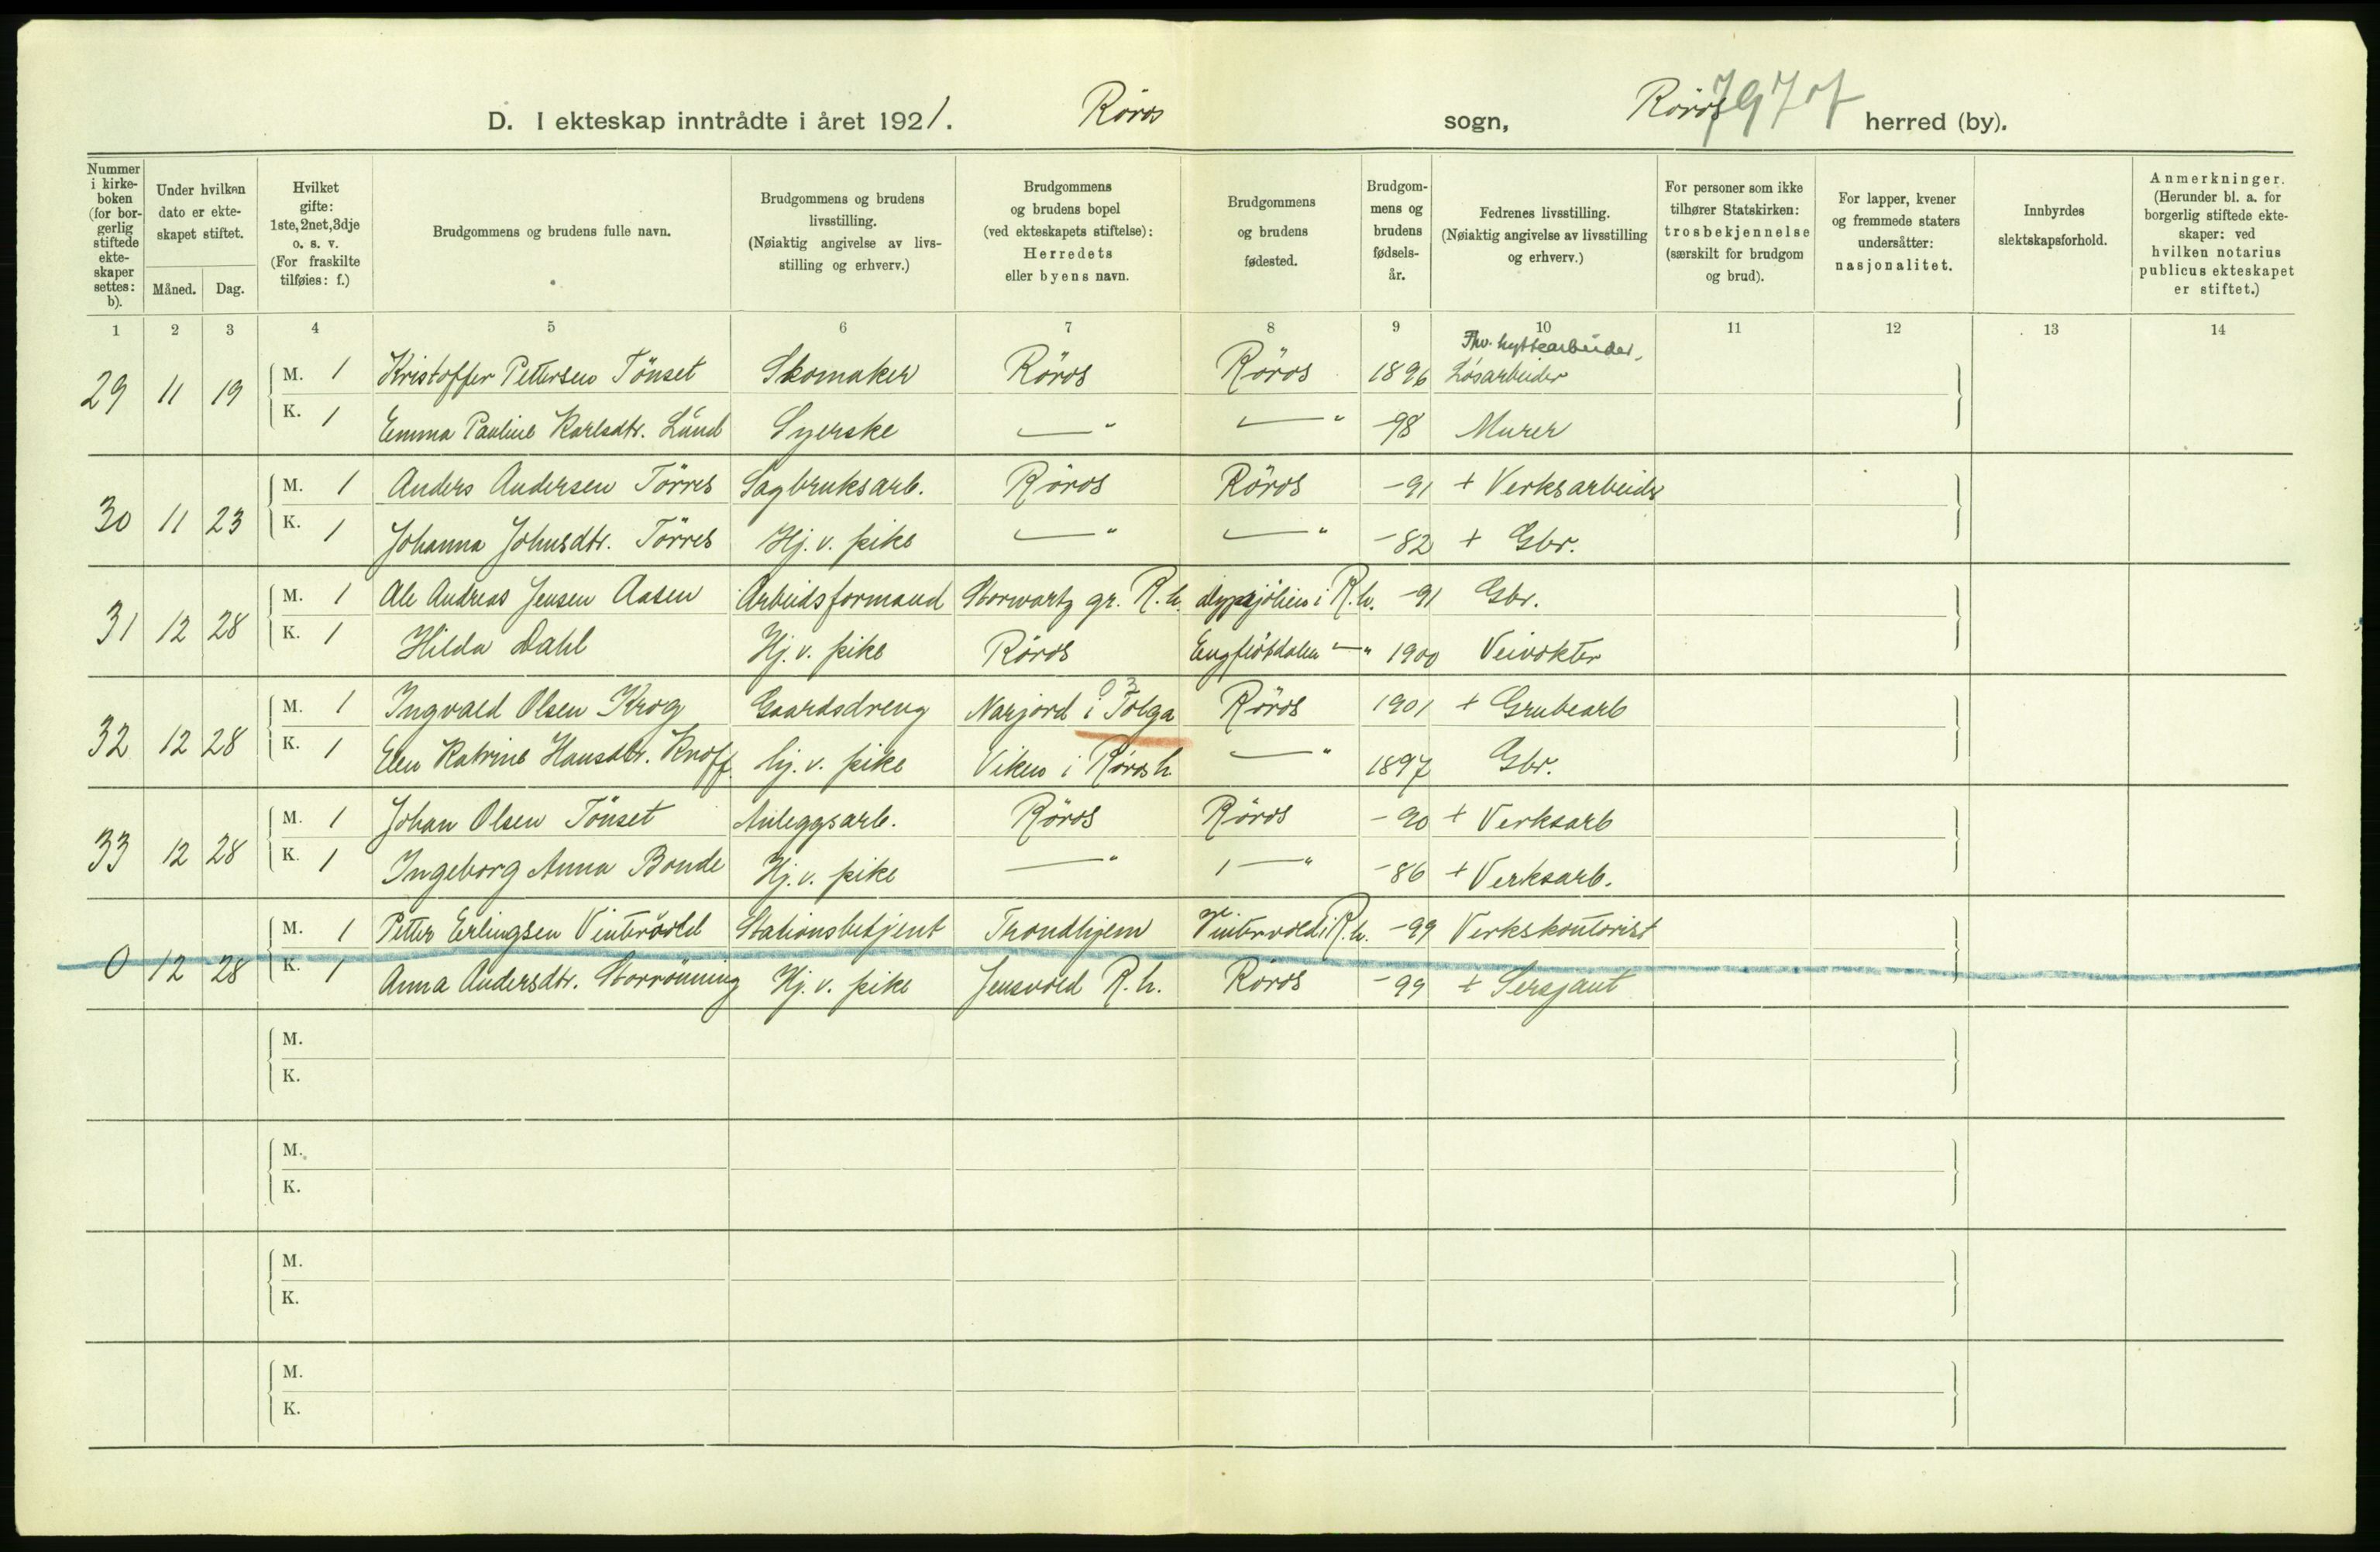 D. I ekteskap inntrådte i året 1921. Röros sogn, Röros herred (by).
Nummer i kirke-boken (for bor-gerlig stiftede ekte-skaper settes: b).
Under hvilken dato er ekte-skapet stiftet.
Måned. Dag.
Hvilket gifte: 1ste, 2net, 3dje o. s. v. (For fraskilte tilføies: f.)
Brudgommens og brudens fulle navn.
Brudgommens og brudens livsstilling. (Nøiaktig angivelse av livs-stilling og erhverv.)
Brudgommens og brudens bopel (ved ekteskapets stiftelse): Herredets eller byens navn.
Brudgommens og brudens fødested.
Brudgom-mens og brudens fødsels-år.
Fedrenes livsstilling. (Nøiaktig angivelse av livsstilling og erhverv.)
For personer som ikke tilhører Statskirken: trosbekjennelse (særskilt for brudgom og brud).
For lapper, kvener og fremmede staters undersåtter: nasjonalitet.
Innbyrdes slektskapsforhold.
Anmerkninger. (Herunder bl. a. for borgerlig stiftede ekte-skaper: ved hvilken notarius publicus ekteskapet er stiftet.)
1 2 3 4 5 6 7 8 9 10 11 12 13 14
Fhv. hyttearbeider,
29 11 19 M. 1 Kristoffer Pettersen Tönset Skomaker Röros Röros 1896 Løsarbeider
K. 1 Emma Pauline Karlsdtr. Lund Syerske —"— —"— -98 Murer
30 11 23 M. 1 Anders Andersen Törres Sagbruksarb. Röros Röros -91 + Verksarbeider
K. 1 Johanna Johnsdtr. Törres Hj. v. pike —"— —"— -82 + Gbr.
31 12 28 M. 1 Ole Andreas Jensen Aasen Arbeidsformand Storwartz gr. R.h. i R.h. -91 Gbr.
K. 1 Hilda Dahl Hj. v. pike Röros —"— 1900 Veivokter
32 12 28 M. 1 Ingvald Olsen Krog Gaardsdreng Narjord i Tolga Röros 1901 + Grubearb
K. 1 Elen Katrine Hansdtr. Knoff hj. v. pike Viken i Röros h. —"— 1897 Gbr.
33 12 28 M. 1 Johan Olsen Tönset Anleggsarb. Röros Röros -90 + Verksarb
K. 1 Ingeborg Anna Bonde Hj. v. pike —"— —"— -86 + Verksarb.
0 12 28 M. 1 Petter Erlingsen Vintervold Stationsbetjent Trondhjem Vintervold i R.h. -99 Verkskontorist
K. 1 Anna Andersdtr. Storrönning Hj. v. pike Jensvold R.h. Röros -99 + Sersjant
M.
K.
M.
K.
M.
K.
M.
K.